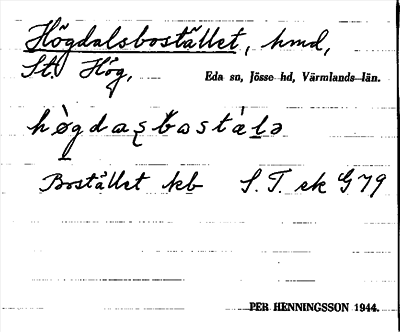 Högdalsbostället, hmd,
St. Hög, Eda sn, Jösse hd, Värmlands län.
Bostället kb S. T. ek G 79
PER HENNINGSSON 1944.